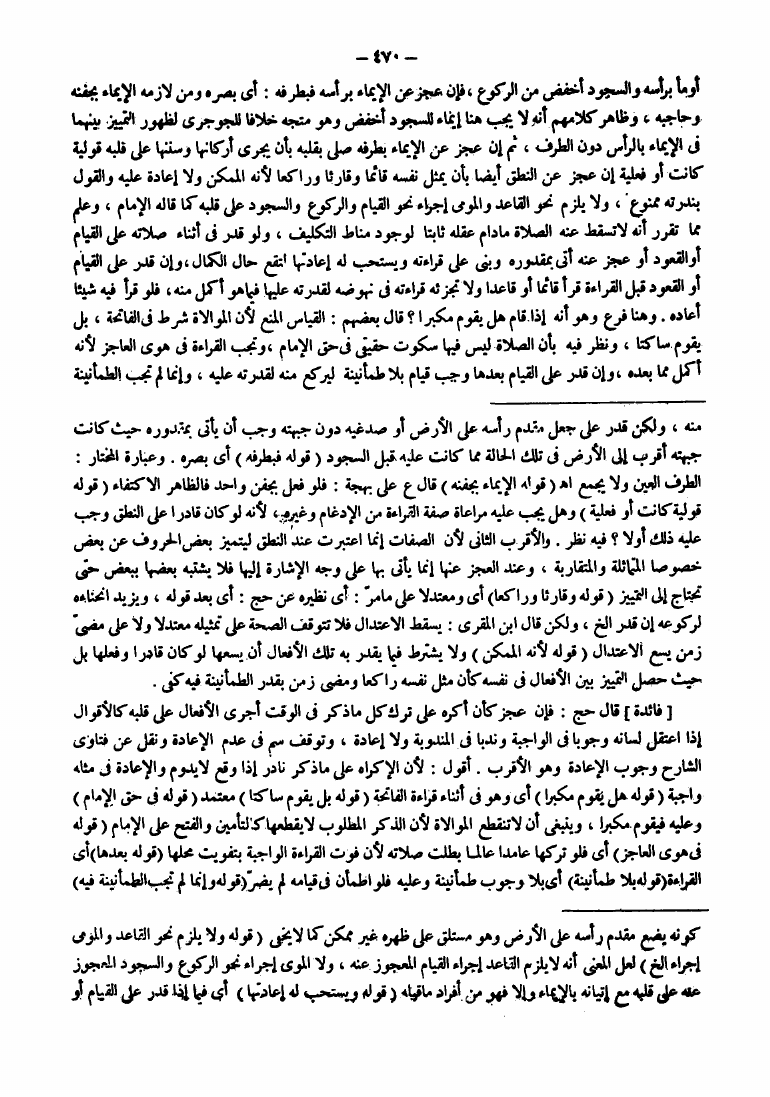 — ٤٧٠ —
أومأ برأسه والسجود أخفض من الركوع ، فإن عجز عن الإيماء برأسه فبطرفه : أى بصره ومن لازمه الإيماء بجفنه
وحاجبه ، وظاهر كلامهم أنه لا يجب هنا إيماء للسجود أخفض وهو متجه خلافا للجوجرى لظهور التمييز بينهما
فى الإيماء بالرأس دون الطرف ، ثم إن عجز عن الإيماء بطرفه صلى بقلبه بأن يجرى أركانها وسننها على قلبه قولية
كانت أو فعلية إن عجز عن النطق أيضا بأن يمثل نفسه قائما وقارئا وراكعا لأنه الممكن ولا إعادة عليه والقول
بندرته ممنوع ، ولا يلزم نحو القاعد والمومى إجراء نحو القيام والركوع والسجود على قلبه كما قاله الإمام ، وعلم
مما تقرر أنه لا تسقط عنه الصلاة مادام عقله ثابتا لوجود مناط التكليف ، ولو قدر فى أثناء صلاته على القيام
أو القعود أو عجز عنه أتى بمقدوره وبنى على قراءته ويستحب له إعادتها لتقع حال الكمال ، وإن قدر على القيام
أو القعود قبل القراءة قرأ قائما أو قاعدا ولا تجزئه قراءته فى نهوضه لقدرته عليها فيما هو أكمل منه ، فلو قرأ فيه شيئا
أعاده . وهنا فرع وهو أنه إذا قام هل يقوم مكبرا ؟ قال بعضهم : القياس المنع لأن الموالاة شرط فى الفاتحة ، بل
يقوم ساكتا ، ونظر فيه بأن الصلاة ليس فيها سكوت حقيقى فى حق الإمام ، وتجب القراءة فى هوى العاجز لأنه
أكمل مما بعده ، وإن قدر على القيام بعدها وجب قيام بلا طمأنينة ليركع منه لقدرته عليه ، وإنما لم تجب الطمأنينة
منه ، ولكن قدر على جعل مقدم رأسه على الأرض أو صدغيه دون جبهته وجب أن يأتى بمقدوره حيث كانت
جبهته أقرب إلى الأرض فى تلك الحالة مما كانت عليه قبل السجود ( قوله فبطرفه ) أى بصره . وعبارة المختار :
الطرف العين ولا يجمع اه ( قوله الإيماء بجفنه ) قال ع على بهجة : فلو فعل بجفن واحد فالظاهر الاكتفاء ( قوله
قولية كانت أو فعلية ) وهل يجب عليه مراعاة صفة القراءة من الإدغام وغيره ، لأنه لو كان قادرا على النطق وجب
عليه ذلك أولا ؟ فيه نظر . والأقرب الثانى لأن الصفات إنما اعتبرت عند النطق ليتميز بعض الحروف عن بعض
خصوصا المتماثلة والمتقاربة ، وعند العجز عنها إنما يأتى بها على وجه الإشارة إليها فلا يشتبه بعضها ببعض حتى
تحتاج إلى التمييز ( قوله وقارئا وراكعا) أى ومعتدلا على مامرّ : أى نظيره عن حج : أى بعد قوله ، ويزيد انحناءه
لركوعه إن قدر الخ ، ولكن قال ابن المقرى : يسقط الاعتدال فلا تتوقف الصحة على تمثيله معتدلا ولا على مضىّ
زمن يسع الاعتدال ( قوله لأنه الممكن ) ولا يشترط فيما يقدر به تلك الأفعال أن يسعها لو كان قادرا وفعلها بل
حيث حصل التمييز بين الأفعال فى نفسه كأن مثل نفسه راكعا ومضى زمن بقدر الطمأنينة فيه كفى .
[ فائدة ] قال حج : فإن عجز كأن أكره على ترك كل ماذكر فى الوقت أجرى الأفعال على قلبه كالأقوال
إذا اعتقل لسانه وجوبا فى الواجبة وندبا فى المندوبة ولا إعادة ، وتوقف سم فى عدم الإعادة ونقل عن فتاوى
الشارح وجوب الإعادة وهو الأقرب . أقول : لأن الإكراه على ماذكر نادر إذا وقع لايدوم والإعادة فى مثله
واجبة ( قوله هل يقوم مكبرا ) أى وهو فى أثناء قراءة الفاتحة ( قوله بل يقوم ساكتا ) معتمد ( قوله فى حق الإمام )
وعليه فيقوم مكبرا ، وينبغى أن لا تنقطع الموالاة لأن الذكر المطلوب لايقطعها كالتأمين والفتح على الإمام ( قوله
فى هوى العاجز) أى فلو تركها عامدا عالما بطلت صلاته لأن فوت القراءة الواجبة بتفويت محلها (قوله بعدها) أى
القراءة (قوله بلا طمأنينة) أى بلا وجوب طمأنينة وعليه فلو اطمأن فى قيامه لم يضرّ (قوله وإنما لم تجب الطمأنينة فيه)
كونه يضع مقدم رأسه على الأرض وهو مستلق على ظهره غير ممكن كما لا يخفى ( قوله ولا يلزم نحو القاعد والمومى
إجراء الخ ) لعل المعنى أنه لايلزم القاعد إجراء القيام المعجوز عنه ، ولا المومى إجراء نحو الركوع والسجود المعجوز
عنه على قلبه مع إتيانه بالإيماء وإلا فهو من أفراد ماقبله ( قوله ويستحب له إعادتها ) أى فيما إذا قدر على القيام أو